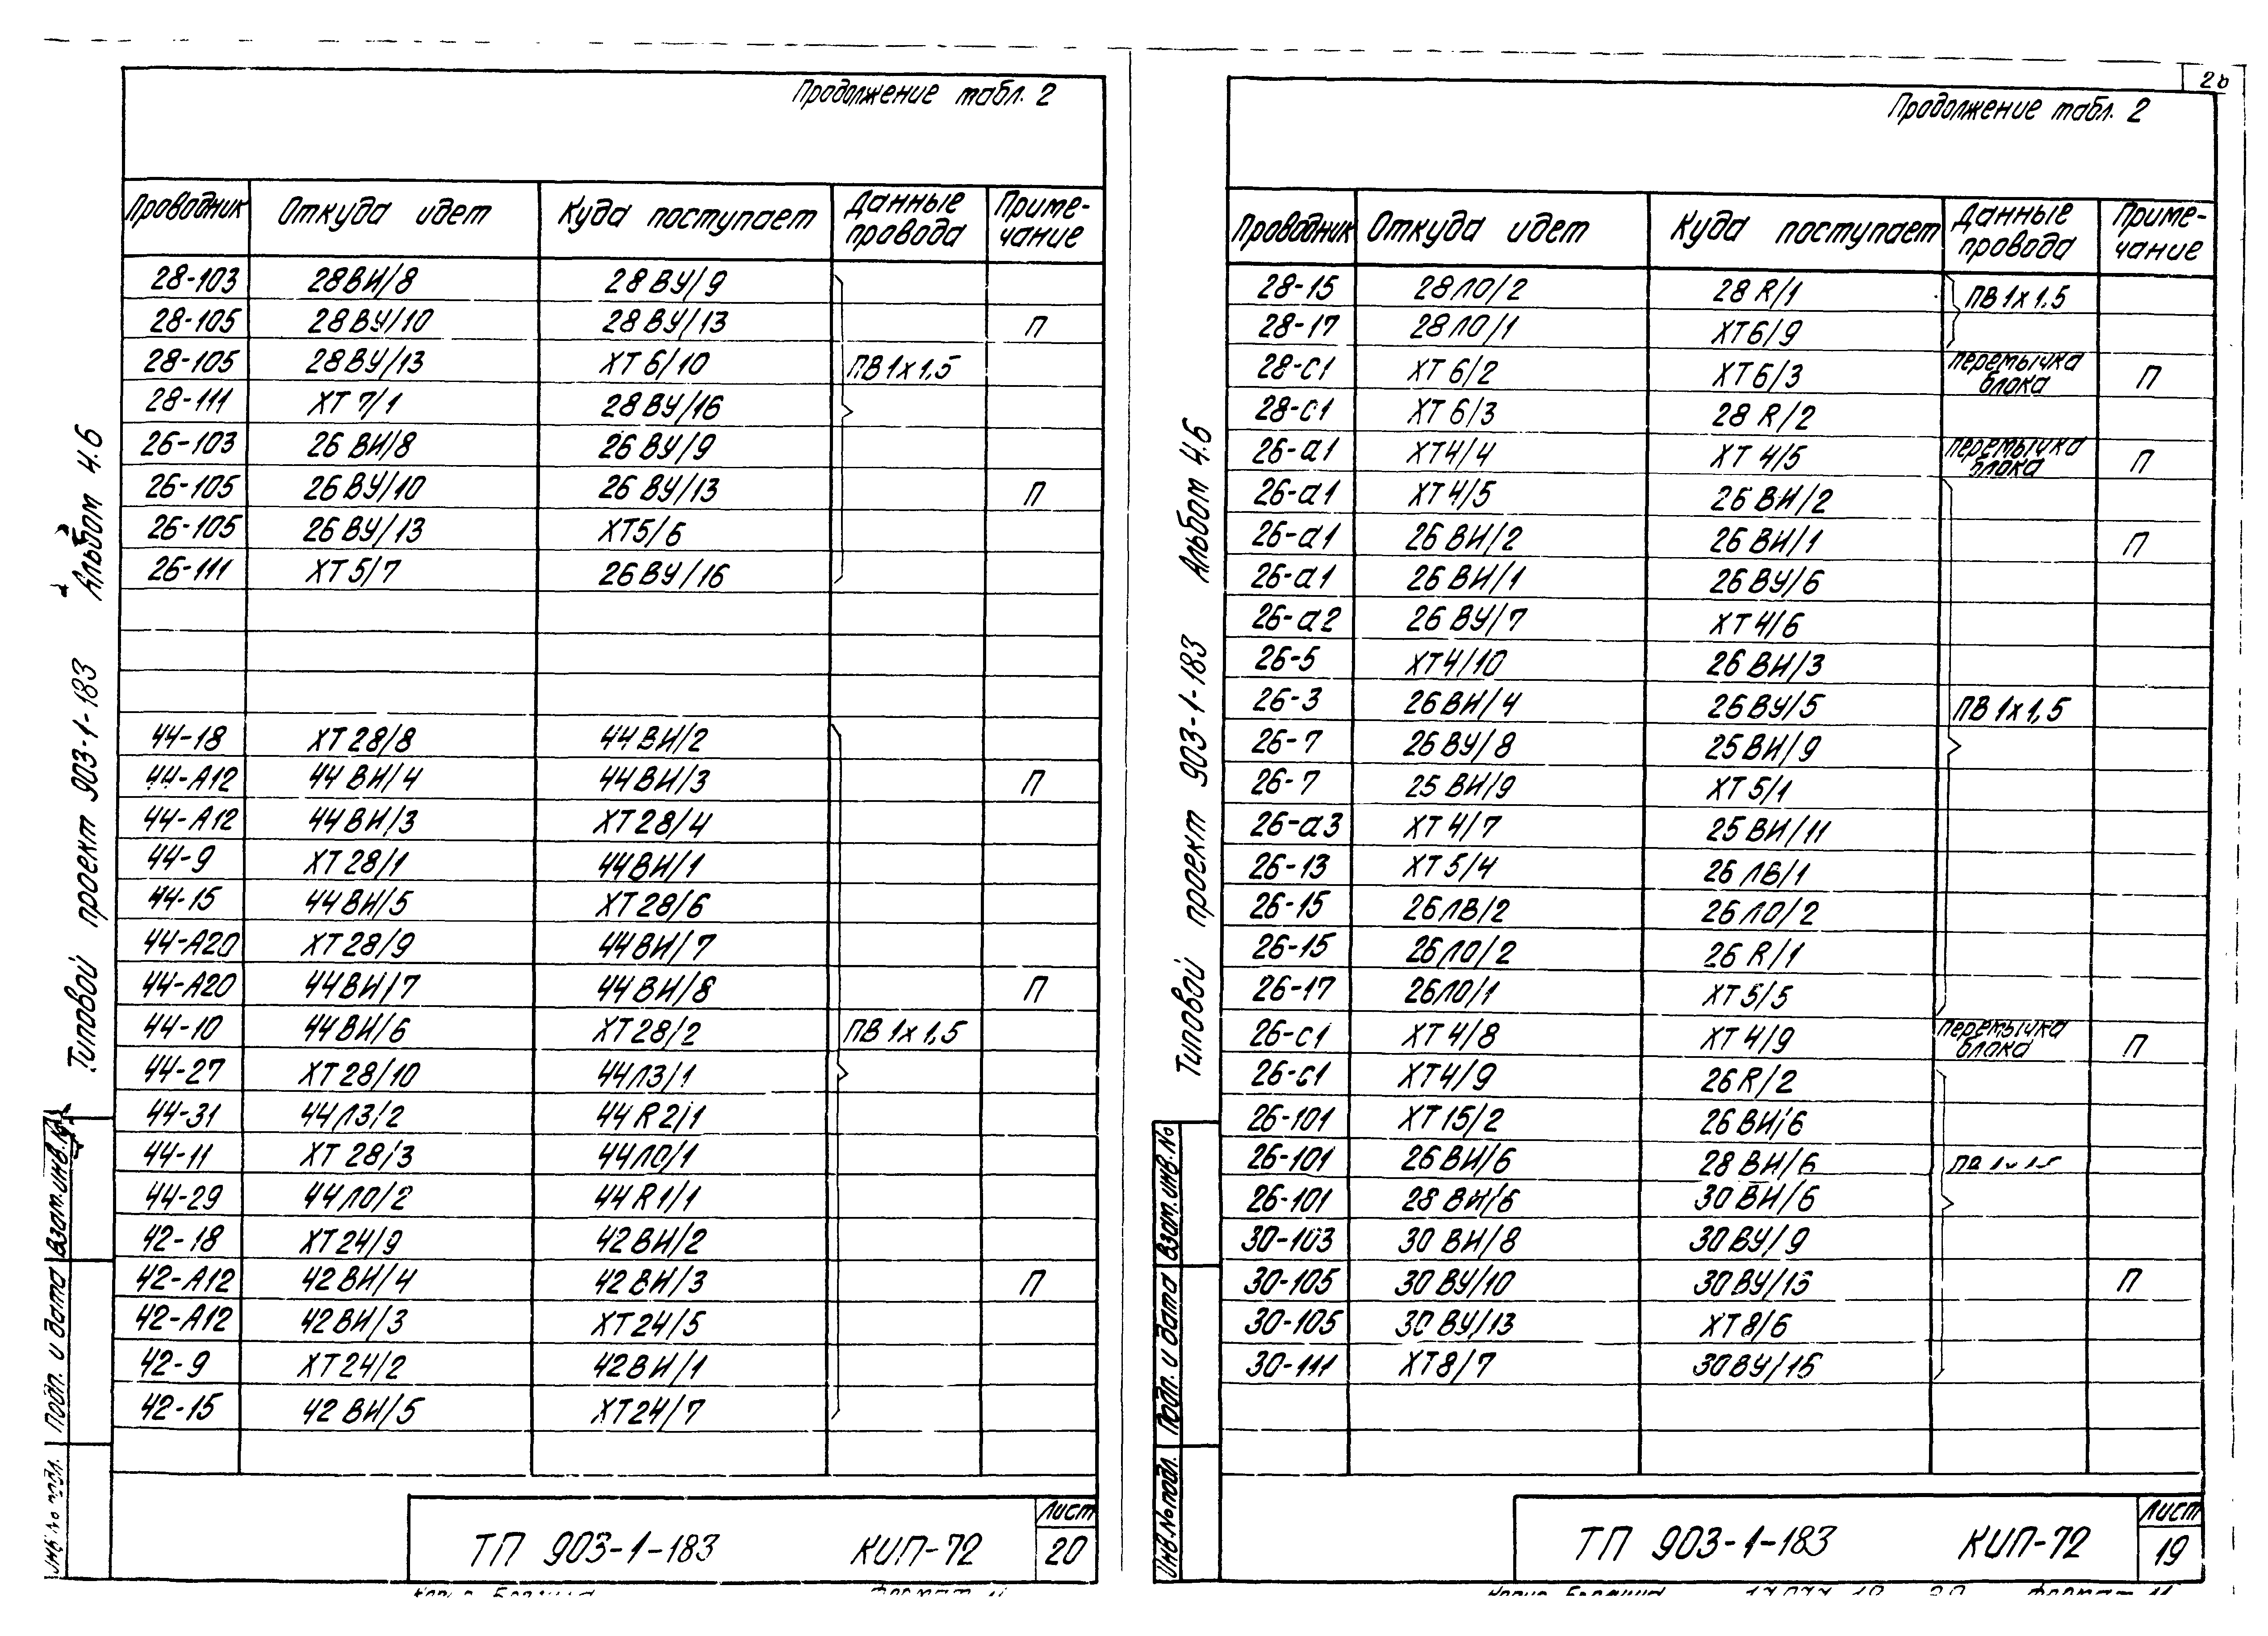 Продолжение табл. 2
Проводник Откуда идет Куда поступает Данные провода Приме-чание
28-103 28ВИ/8 28ВУ/9
28-105 28ВУ/10 28ВУ/13 П
28-105 28ВУ/13 ХТ6/10 ПВ1х1,5
28-111 ХТ7/1 28ВУ/16
26-103 26ВИ/8 26ВУ/9
26-105 26ВУ/10 26ВУ/13 П
26-105 26ВУ/13 ХТ5/6
26-111 ХТ5/7 26ВУ/16
44-18 ХТ28/8 44ВИ/2
44-А12 44ВИ/4 44ВИ/3 П
44-А12 44ВИ/3 ХТ28/4
44-9 ХТ28/1 44ВИ/1
44-15 44ВИ/5 ХТ28/6
44-А20 ХТ28/9 44ВИ/7
44-А20 44ВИ/7 44ВИ/8 П
44-10 44ВИ/6 ХТ28/2 ПВ1х1,5
44-27 ХТ28/10 44ЛЗ/1
44-31 44ЛЗ/2 44R2/1
44-11 ХТ28/3 44ЛО/1
44-29 44ЛО/2 44R1/1
42-18 ХТ24/9 42ВИ/2
42-А12 42ВИ/4 42ВИ/3 П
42-А12 42ВИ/3 ХТ24/5
42-9 ХТ24/2 42ВИ/1
42-15 42ВИ/5 ХТ24/7
Типовой проект 903-1-183 Альбом 4.6
Взам.инв.№
Подп. и дата
Инв.№ подл.
ТП 903-1-183 КИП-72
Лист
20
26
Продолжение табл. 2
Проводник Откуда идет Куда поступает Данные провода Приме-чание
28-15 28ЛО/2 28R/1 ПВ1х1,5
28-17 28ЛО/1 ХТ6/9
28-с1 ХТ6/2 ХТ6/3 перемычка блока П
28-с1 ХТ6/3 28R/2
26-а1 ХТ4/4 ХТ4/5 перемычка блока П
26-а1 ХТ4/5 26ВИ/2
26-а1 26ВИ/2 26ВИ/1 П
26-а1 26ВИ/1 26ВУ/6
26-а2 26ВУ/7 ХТ4/6
26-5 ХТ4/10 26ВИ/3
26-3 26ВИ/4 26ВУ/5 ПВ1х1,5
26-7 26ВУ/8 25ВИ/9
26-7 25ВИ/9 ХТ5/1
26-а3 ХТ4/7 25ВИ/11
26-13 ХТ5/4 26ЛВ/1
26-15 26ЛВ/2 26ЛО/2
26-15 26ЛО/2 26R/1
26-17 26ЛО/1 ХТ5/5
26-с1 ХТ4/8 ХТ4/9 перемычка блока П
26-с1 ХТ4/9 26R/2
26-101 ХТ15/2 26ВИ/6
26-101 26ВИ/6 28ВИ/6 ПВ1х1,5
26-101 28ВИ/6 30ВИ/6
30-103 30ВИ/8 30ВУ/9
30-105 30ВУ/10 30ВУ/13 П
30-105 30ВУ/13 ХТ8/6
30-111 ХТ8/7 30ВУ/16
Типовой проект 903-1-183 Альбом 4.6
Взам.инв.№
Подп. и дата
Инв.№подл.
ТП 903-1-183 КИП-72
Лист
19